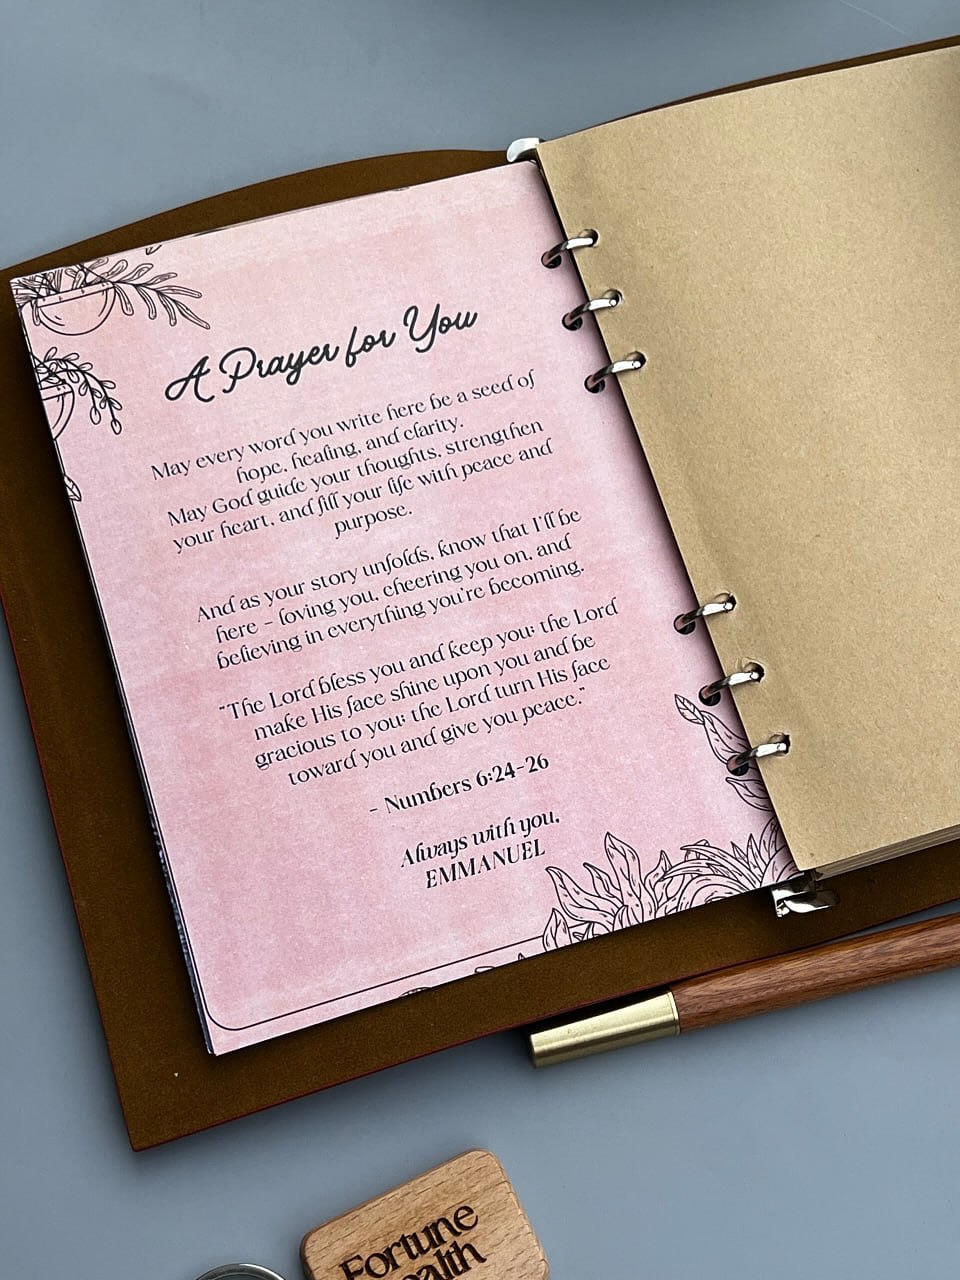 A Prayer for You
May every word you write here be a seed of
hope, healing, and clarity.
May God guide your thoughts, strengthen
your heart, and fill your life with peace and
purpose.
And as your story unfolds, know that I'll be
here – loving you, cheering you on, and
believing in everything you're becoming.
"The Lord bless you and keep you; the Lord
make His face shine upon you and be
gracious to you; the Lord turn His face
toward you and give you peace."
- Numbers 6:24-26
Always with you,
EMMANUEL
Fortune